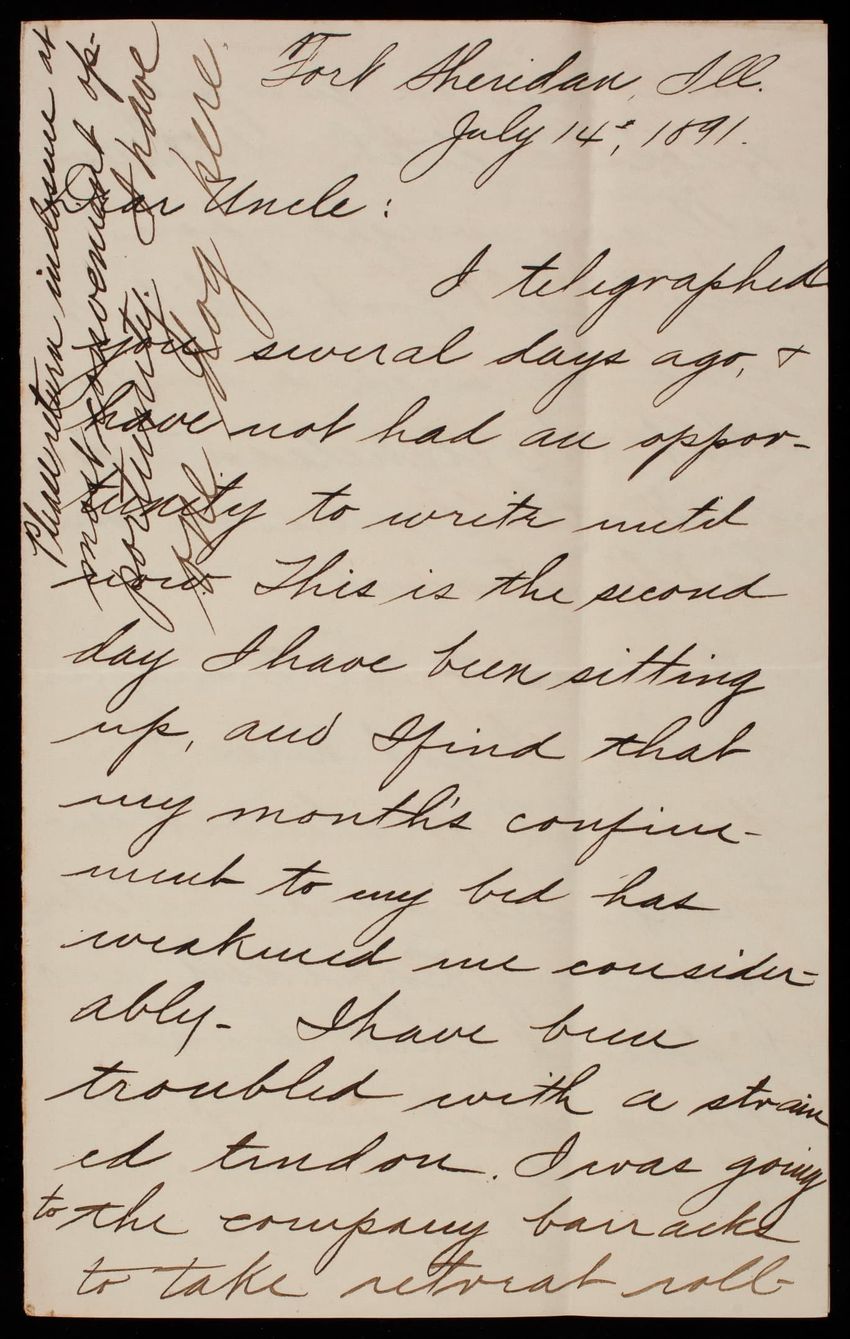 Fort Sheridan, Ill.
July 14th, 1891.
Dear Uncle:
I telegraphed
you several days ago, &
have not had an oppor-
tunity to write until
now. This is the second
day I have been sitting
up, and I find that
my month's confine-
ment to my bed has
weakened me consider-
ably - I have been
troubled with a strain
ed tendon. I was going
to the company barracks
to take retreat roll-
Please return inclosure at
most convenient op-
portunity. I have
one dog here.